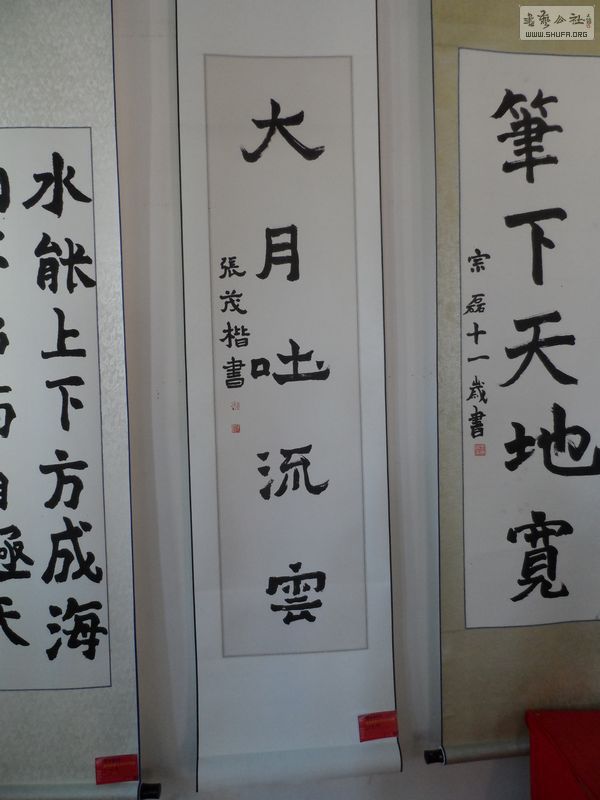 書藝公社
WWW.SHUFA.ORG
筆下天地寬
宗磊十一歲書
大月吐流雲
張茂楷書
水能上下方成海
自極天